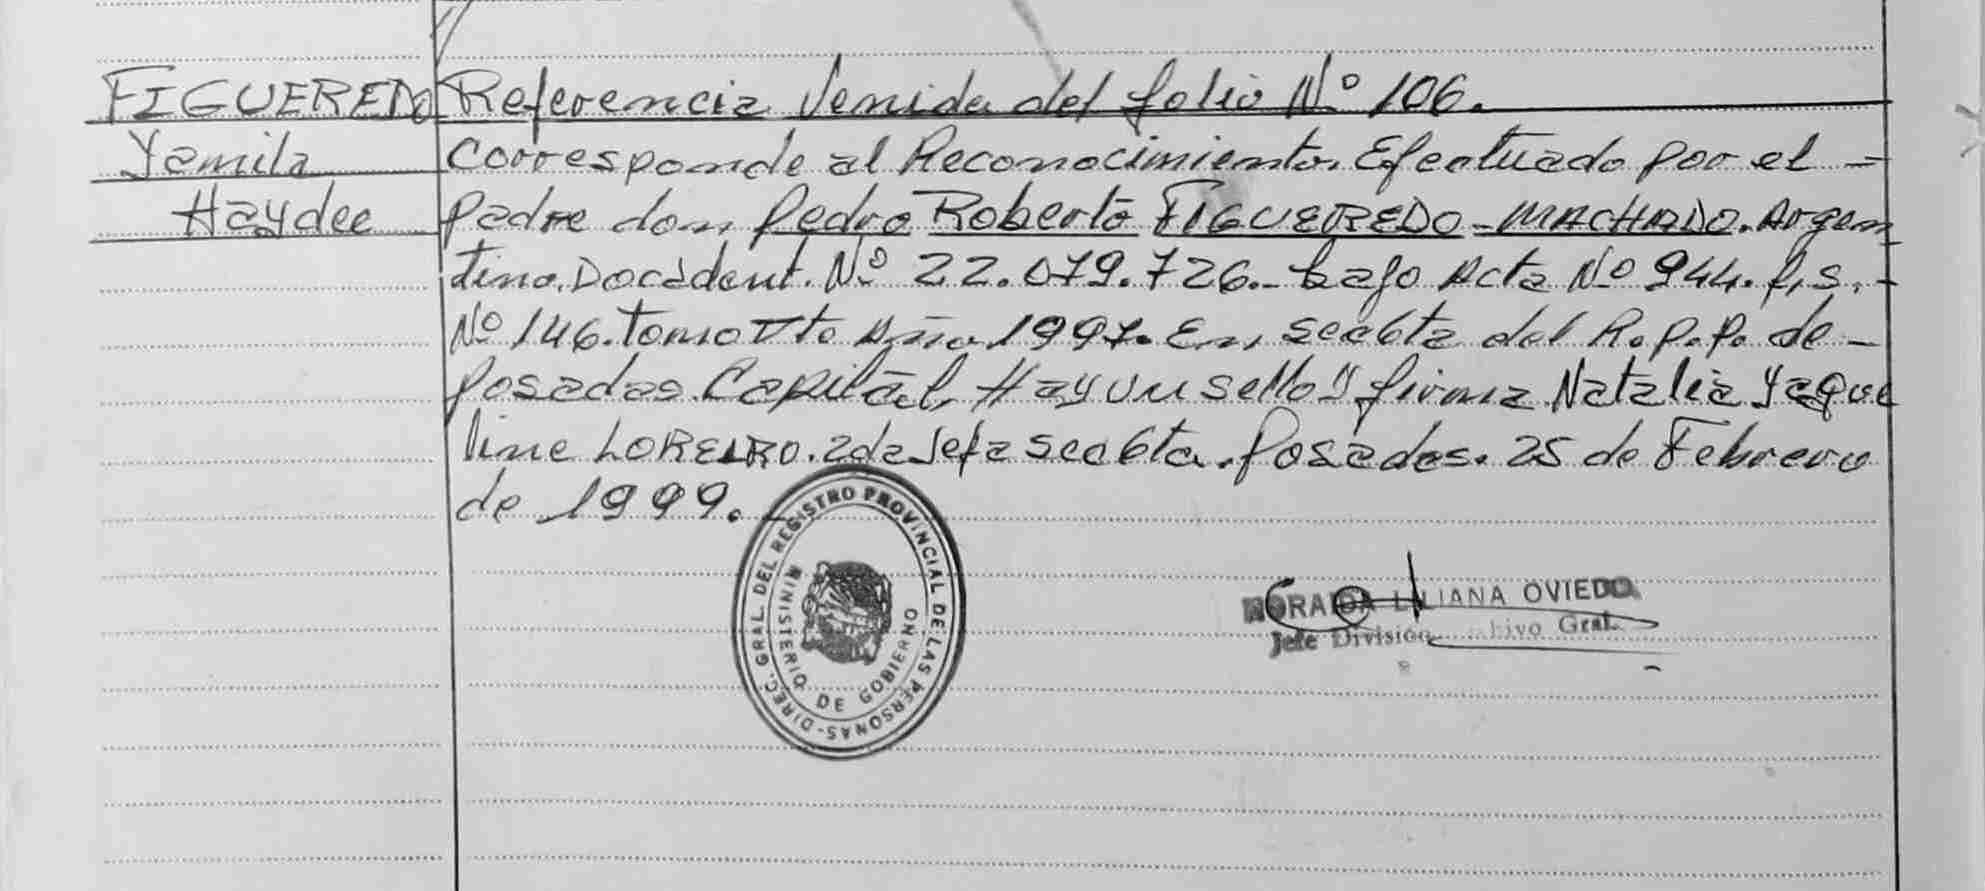 FIGUEREDO
Yamila
Haydee
Referencia Venida del folio Nº 106.
Corresponde al Reconocimiento Efectuado por el -
padre don Pedro Roberto FIGUEREDO - MACHADO. Argen
tino. Doc. Ident. Nº 22.079.726.- bajo Acta Nº 944. f,s. -
Nº 146. tomo Vto Año 1997. En secc 6ta del R.P.P. de -
Posadas Capital, Hay un sello y firma Natalia Yaque
line LOREIRO. 2da Jefa secc 6ta. Posadas. 25 de Febrero
de 1999.
DIREC. GRAL. DEL REGISTRO PROVINCIAL DE LAS PERSONAS-
MINISTERIO DE GOBIERNO
LILIANA OVIEDO
Jefe División Gral.